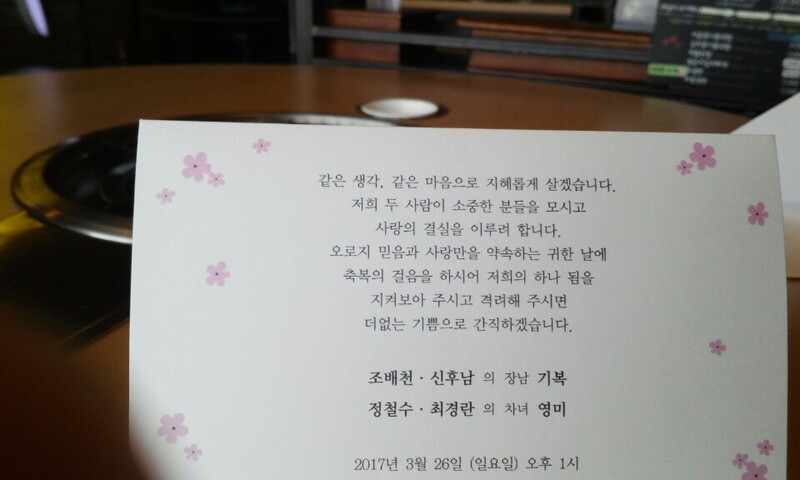 같은 생각, 같은 마음으로 지혜롭게 살겠습니다.
저희 두 사람이 소중한 분들을 모시고
사랑의 결실을 이루려 합니다.
오로지 믿음과 사랑만을 약속하는 귀한 날에
축복의 걸음을 하시어 저희의 하나 됨을
지켜보아 주시고 격려해 주시면
더없는 기쁨으로 간직하겠습니다.
조배천 · 신후남 의 장남 기복
정철수 · 최경란 의 차녀 영미
2017년 3월 26일 (일요일) 오후 1시